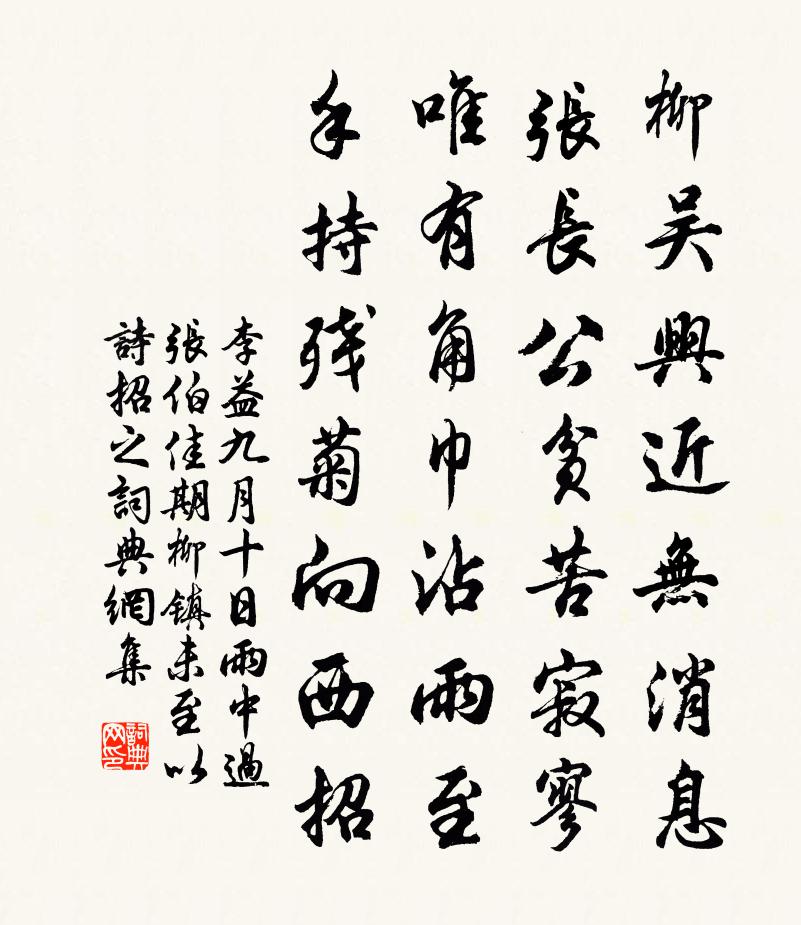 柳吴興近無消息
張長公貧苦寂寥
唯有角巾沾雨至
手持残菊向西招
李益九月十日雨中過
張伯佳期柳鎮未至以
詩招之詞典網集
詞典网印